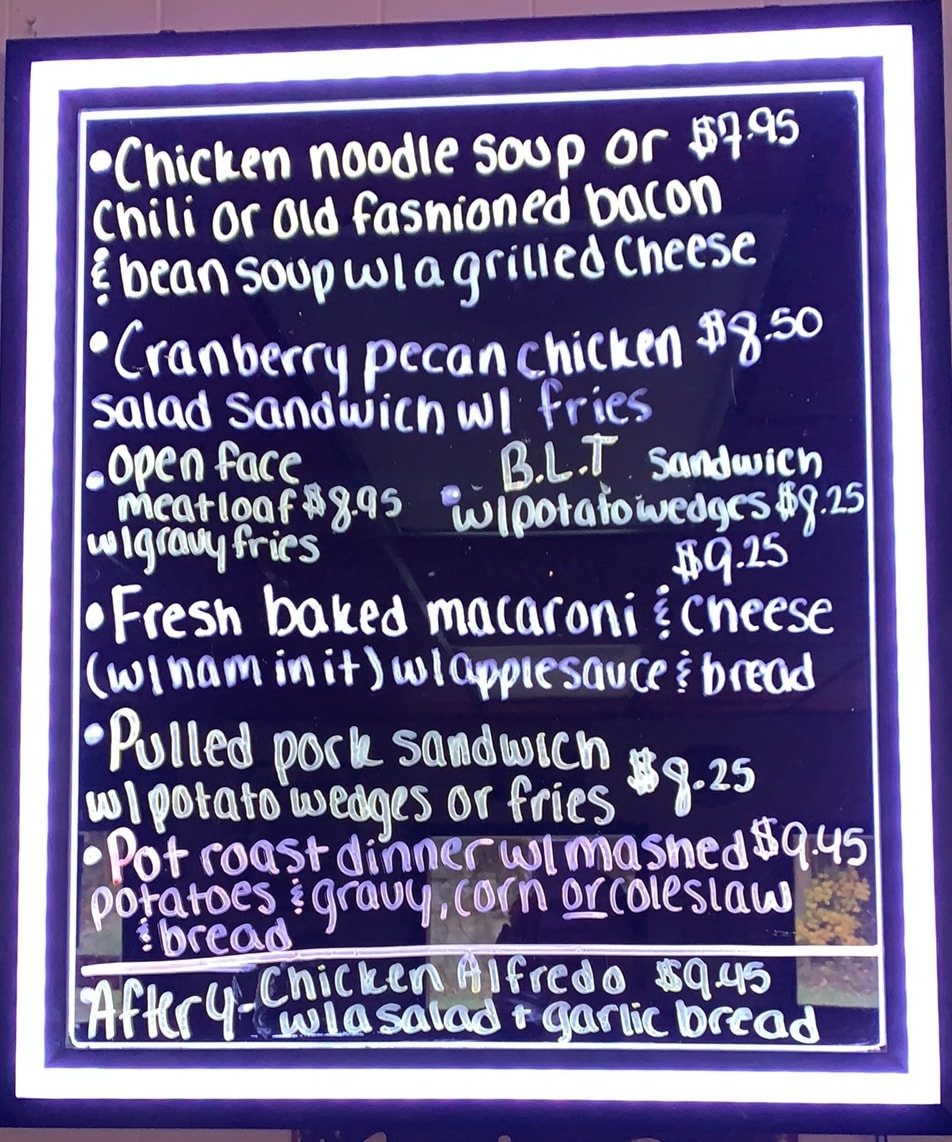 •Chicken noodle soup or $7.95
Chili or old fashioned bacon
& bean soup w/ a grilled cheese
•Cranberry pecan chicken $8.50
salad sandwich w/ fries
•open face
meatloaf $8.95
w/gravy fries
B.L.T. sandwich
•w/potato wedges $8.25
$9.25
•Fresh baked macaroni & cheese
(w/ham in it) w/applesauce & bread
•Pulled pork sandwich
w/potato wedges or fries $8.25
•Pot roast dinner w/ mashed $9.45
potatoes & gravy, corn or coleslaw
& bread
After 4-Chicken Alfredo $9.45
w/a salad + garlic bread